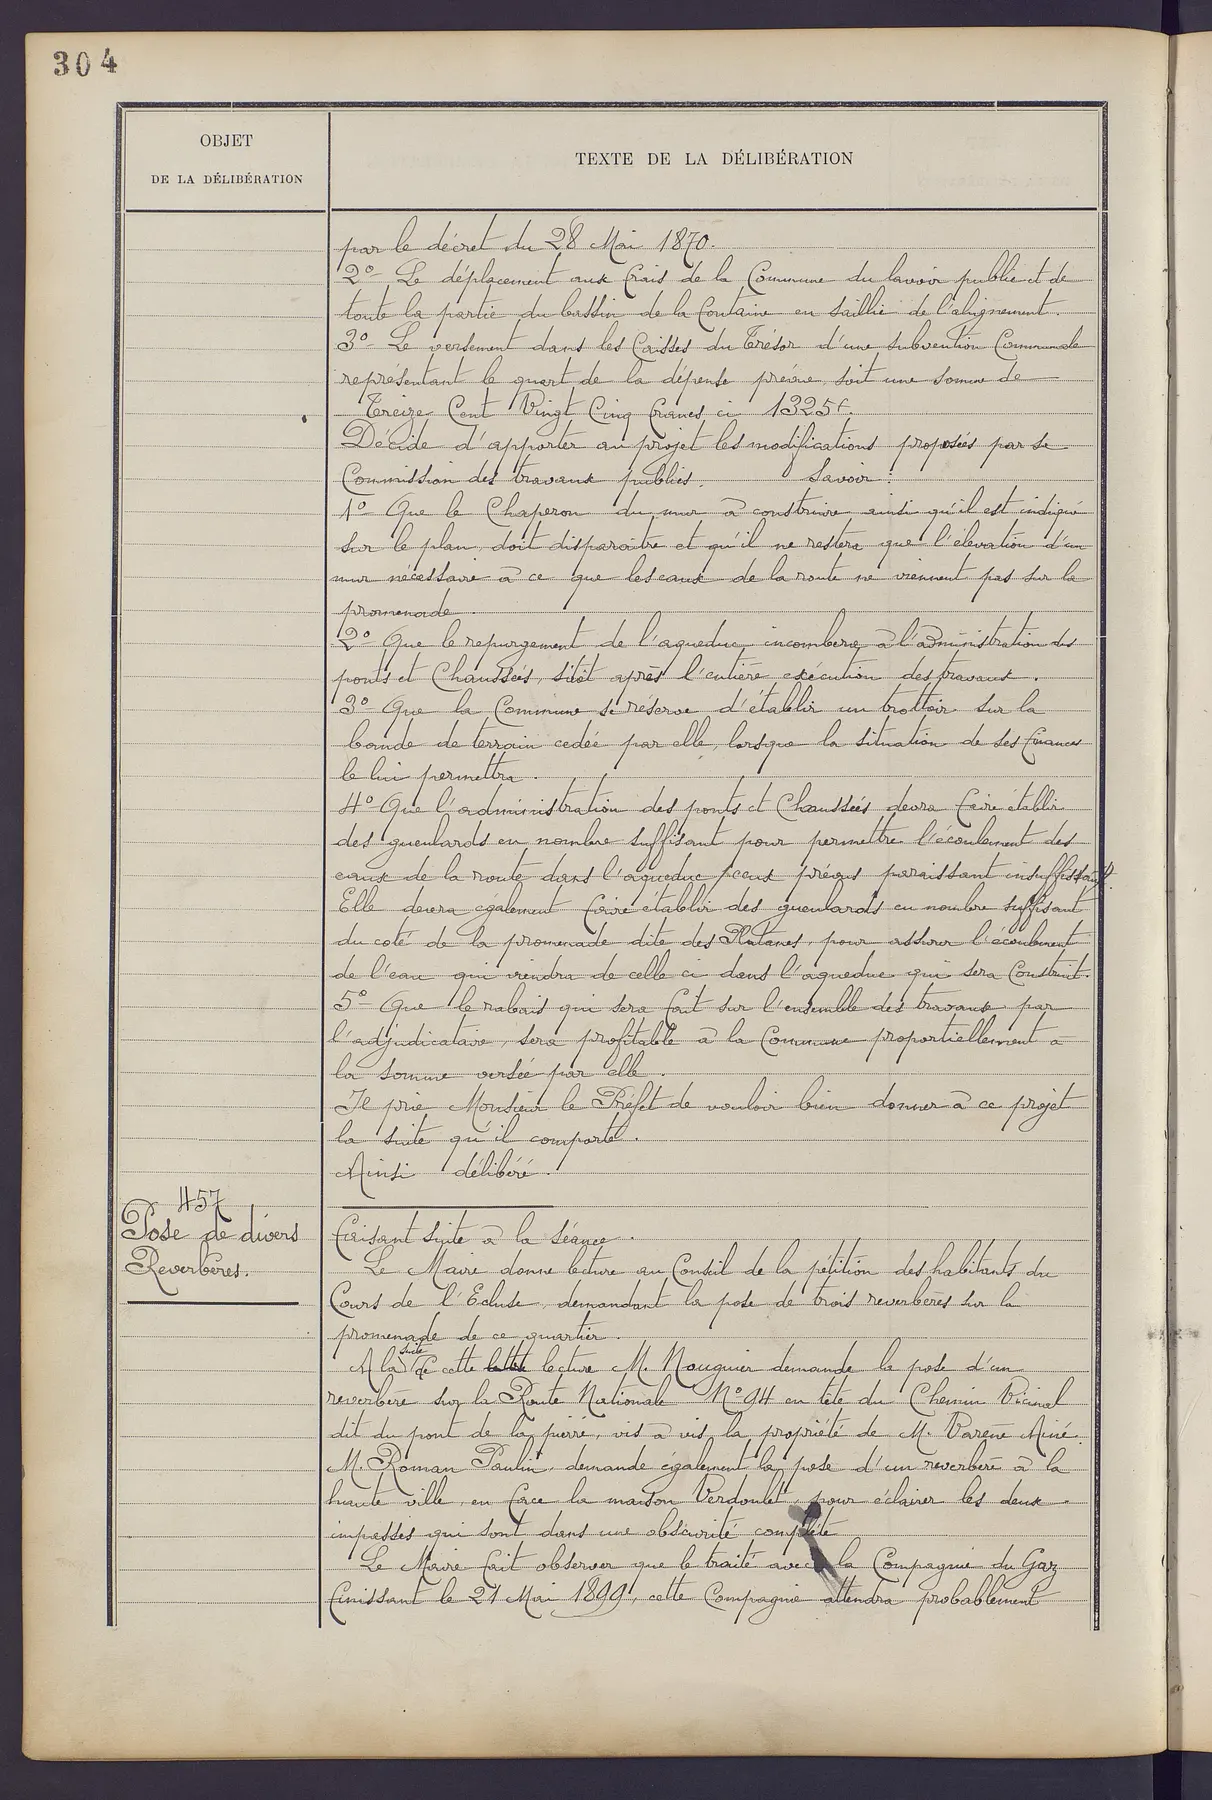 304
OBJET
DE LA DÉLIBÉRATION
TEXTE DE LA DÉLIBÉRATION
par le décret du 28 Mai 1870.
2° Le déplacement aux frais de la Commune du lavoir public et de
toute la partie du bassin de la fontaine en saillie de l'alignement.
3° Le versement dans les Caisses du Trésor d'une subvention Communale
représentant le quart de la dépense prévue, soit une somme de
Treize Cent Vingt Cinq francs ci 1325f.
Décide d'apporter au projet les modifications proposées par sa
Commission des travaux publics. Savoir:
1° Que le Chaperon du mur à construire ainsi qu'il est indiqué
sur le plan, doit disparaitre et qu'il ne restera que l'élévation d'un
mur nécessaire à ce que les eaux de la route ne viennent pas sur la
promenade.
2° Que le repurgement de l'aqueduc incombera à l'administration des
ponts et Chaussées, sitôt après l'entière exécution des travaux.
3° Que la Commune se réserve d'établir un trottoir sur la
bande de terrain cedée par elle, lorsque la situation de ses finances
le lui permettra.
4° Que l'administration des ponts et Chaussées devra faire établir
des gueulards en nombre suffisant pour permettre l'écoulement des
eaux de la route dans l'aqueduc, ceux prévus paraissant insuffisants.
Elle devra également faire établir des gueulards en nombre suffisant
du coté de la promenade dite des Platanes, pour assurer l'écoulement
de l'eau qui viendra de celle ci dans l'aqueduc qui sera Construit.
5° Que le rabais qui sera fait sur l'ensemble des travaux par
l'adjudicataire, sera profitable à la Commune proportiellement à
la somme versée par elle.
Il prie Monsieur le Préfet de vouloir bien donner à ce projet
la suite qu'il comporte.
Ainsi délibéré.
457
Pose de divers
Reverbères.
Faisant suite à la séance.
Le Maire donne lecture au Conseil de la pétition des habitants du
Cours de l'Ecluse, demandant la pose de trois reverbères sur la
promenade de ce quartier.
suite
A la de cette lecture M. Nouguier demande la pose d'un
reverbère sur la Route Nationale N° 94 en tête du Chemin Vicinal
dit du pont de la pierre, vis à vis la propriété de M. Varène Ainé.
M. Roman Paulin, demande également la pose d'un reverbère à la
haute ville, en face la maison Verdoulet, pour éclairer les deux
impasses qui sont dans une obscurité complète
Le Maire fait observer que le traité avec la Compagnie du Gaz
finissant le 21 Mai 1899, cette Compagnie attendra probablement